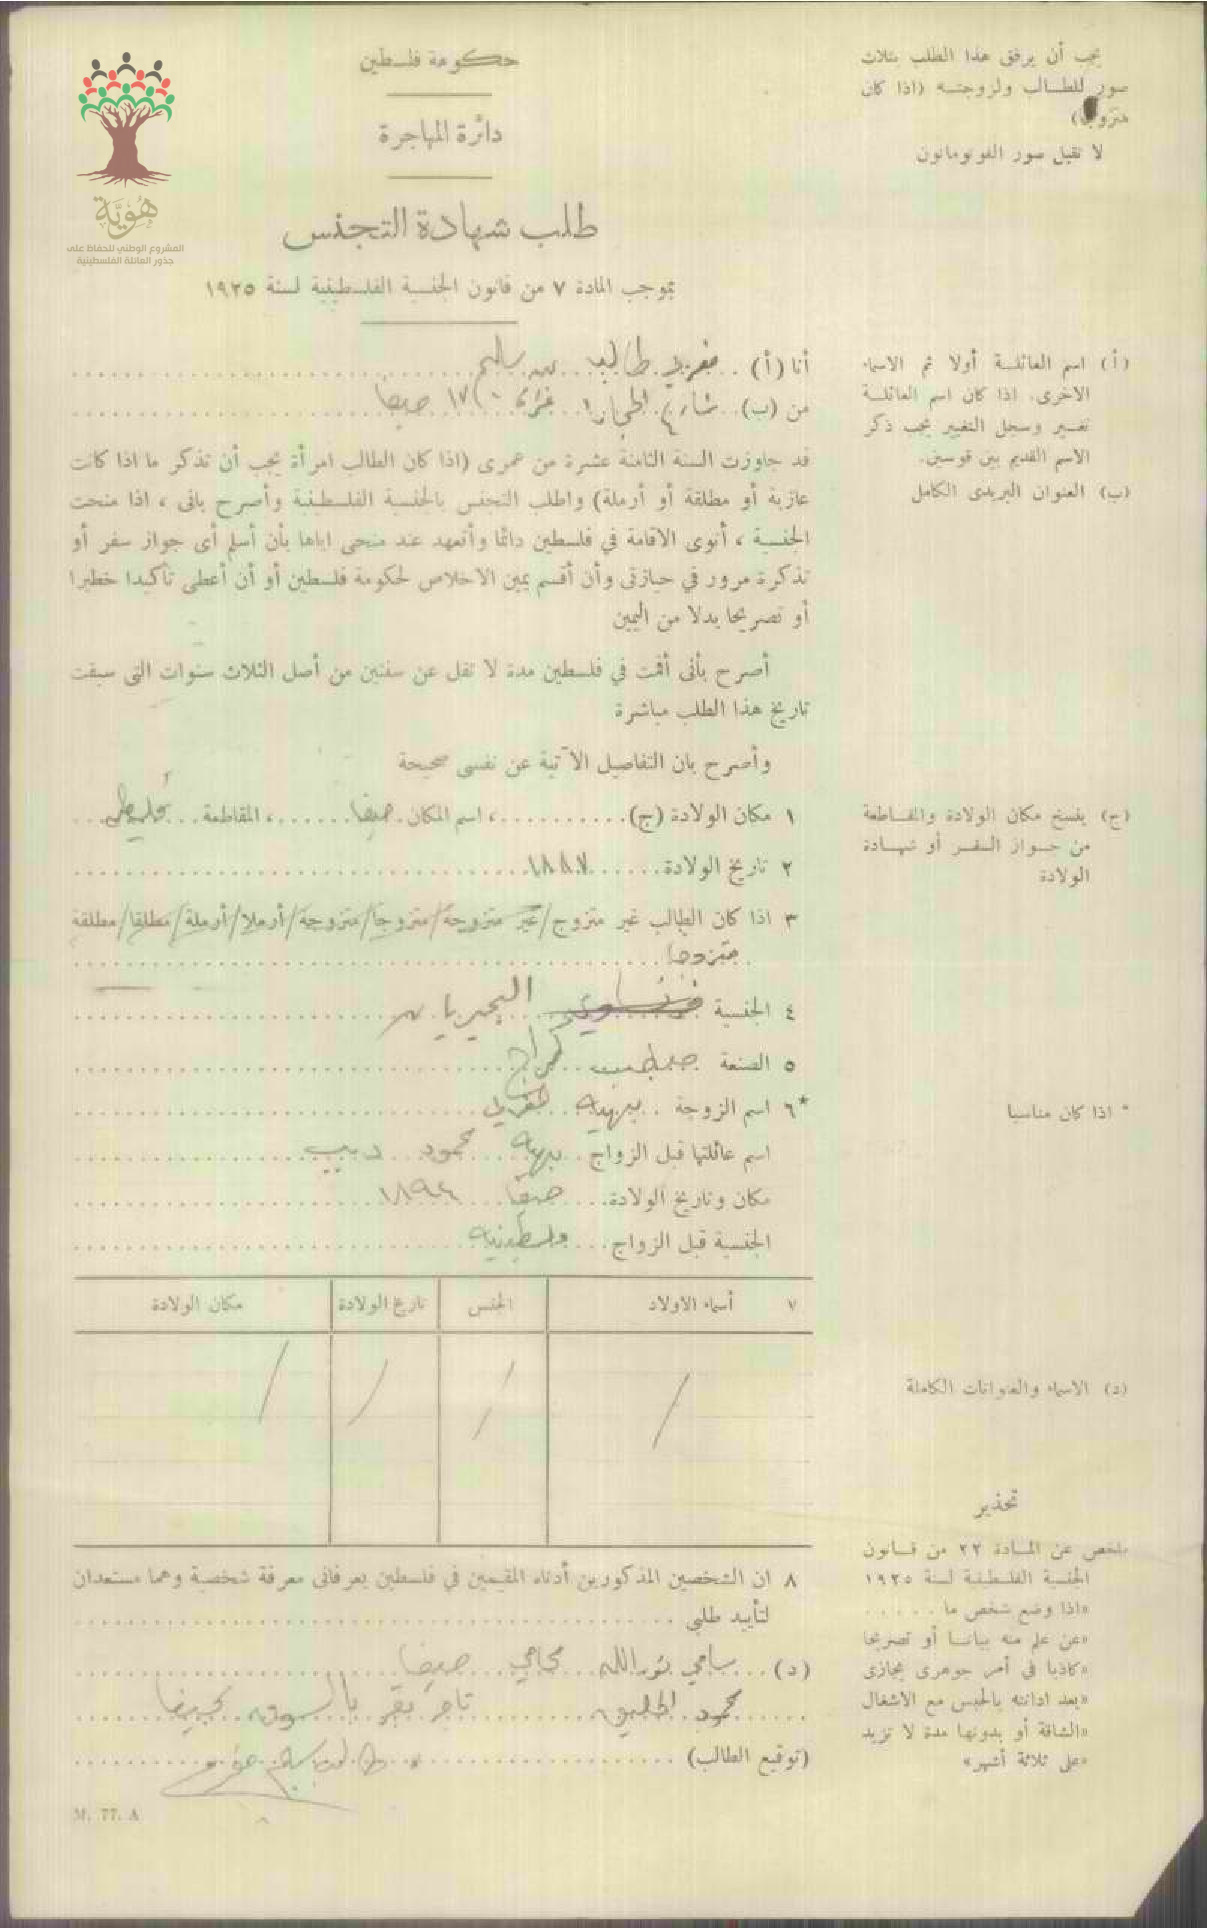 هُوِيَّة
المشروع الوطني للحفاظ على
جذور العائلة الفلسطينية
حكومة فلسطين
دائرة المهاجرة
طلب شهادة التجنس
بموجب المادة ٧ من قانون الجنسية الفلسطينية لسنة ١٩٢٥
يجب أن يرفق هذا الطلب بثلاث
صور للطالب ولزوجته (اذا كان
متزوجا)
لا تقبل صور الفوتوماتون
أنا (أ) مغربي طالب بن سالم
من (ب) شارع الحجاز غرة ١٧٠ حيفا
قد جاوزت السنة الثامنة عشرة من عمرى (اذا كان الطالب امرأة يجب أن تذكر ما اذا كانت
عازبة أو مطلقة أو أرملة) واطلب التجنس بالجنسية الفلسطينية وأصرح بانى ، اذا منحت
الجنسية ، أنوى الاقامة في فلسطين دائما وأتعهد عند منحى اياها بأن أسلم أى جواز سفر أو
تذكرة مرور في حيازتى وأن أقسم يمين الاخلاص لحكومة فلسطين أو أن أعطى تأكيدا خطيرا
أو تصريحا بدلا من اليمين
أصرح بأنى أقمت في فلسطين مدة لا تقل عن سنتين من أصل الثلاث سنوات التى سبقت
تاريخ هذا الطلب مباشرة
وأصرح بان التفاصيل الآتية عن نفسى صحيحة
١ مكان الولادة (ج) ، اسم المكان حيفا ، المقاطعة
٢ تاريخ الولادة ١٨٨٧
٣ اذا كان الطالب غير متزوج/غير متزوجة/متزوجا/متزوجة/أرملا/أرملة/مطلقا/مطلقة
متزوجا
٤ الجنسية فرنساوي
٥ الصنعة
*٦ اسم الزوجة بهية مغربي
اسم عائلتها قبل الزواج بهية محمود ديب
مكان وتاريخ الولادة حيفا ١٨٩٤
الجنسية قبل الزواج فلسطينية
٧ أسماء الاولاد الجنس تاريخ الولادة مكان الولادة
٨ ان الشخصين المذكورين أدناه المقيمين في فلسطين يعرفانى معرفة شخصية وهما مستعدان
لتأييد طلبى
(د) سامي نور الله محامي حيفا
محمود تاجر بقر بالسوق بحيفا
(توقيع الطالب)
M. 77. A
(أ) اسم العائلة أولا ثم الاسماء
الاخرى. اذا كان اسم العائلة
تغير وسجل التغيير يجب ذكر
الاسم القديم بين قوسين.
(ب) العنوان البريدى الكامل
(ج) ينسخ مكان الولادة والمقاطعة
من جواز السفر أو شهادة
الولادة
* اذا كان مناسبا
(د) الاسماء والعنوانات الكاملة
تحذير
ملخص عن المادة ٢٢ من قانون
الجنسية الفلسطينية لسنة ١٩٢٥
«اذا وضع شخص ما . . . . .
«عن علم منه بيانا أو تصريحا
«كاذبا في أمر جوهرى يجازى
«بعد ادانته بالحبس مع الاشغال
«الشاقة أو بدونها مدة لا تزيد
«على ثلاثة أشهر»